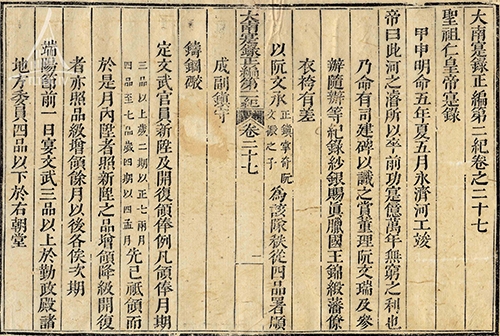 大南寔錄正編第二紀卷之二十七
聖祖仁皇帝寔錄
甲申明命五年夏五月永濟河工竣
帝曰此河之濬所以卒前功寔億萬年無窮之利也
乃命有司建碑以識之賞董理阮文瑞及參
辦隨辦等紀錄紗銀賜眞臘國王錦緞藩僚
衣衿有差
以阮文永正鎮掌奇阮文之子為該隊秩從四品署順
大南寔錄正編第二紀 卷二十七
成副鎮守
鑄銅礮
定文武官員新陞及開復領俸例凡領俸月期
三品以上歲二期以正七兩月四品至七品歲四期以四孟月先已祇領而
於是月內陞者照新陞之品增領降級開復
者亦照品級增領餘月以後各俟次期
端陽節前一日宴文武三品以上於勤政殿諸
地方委員四品以下於右朝堂